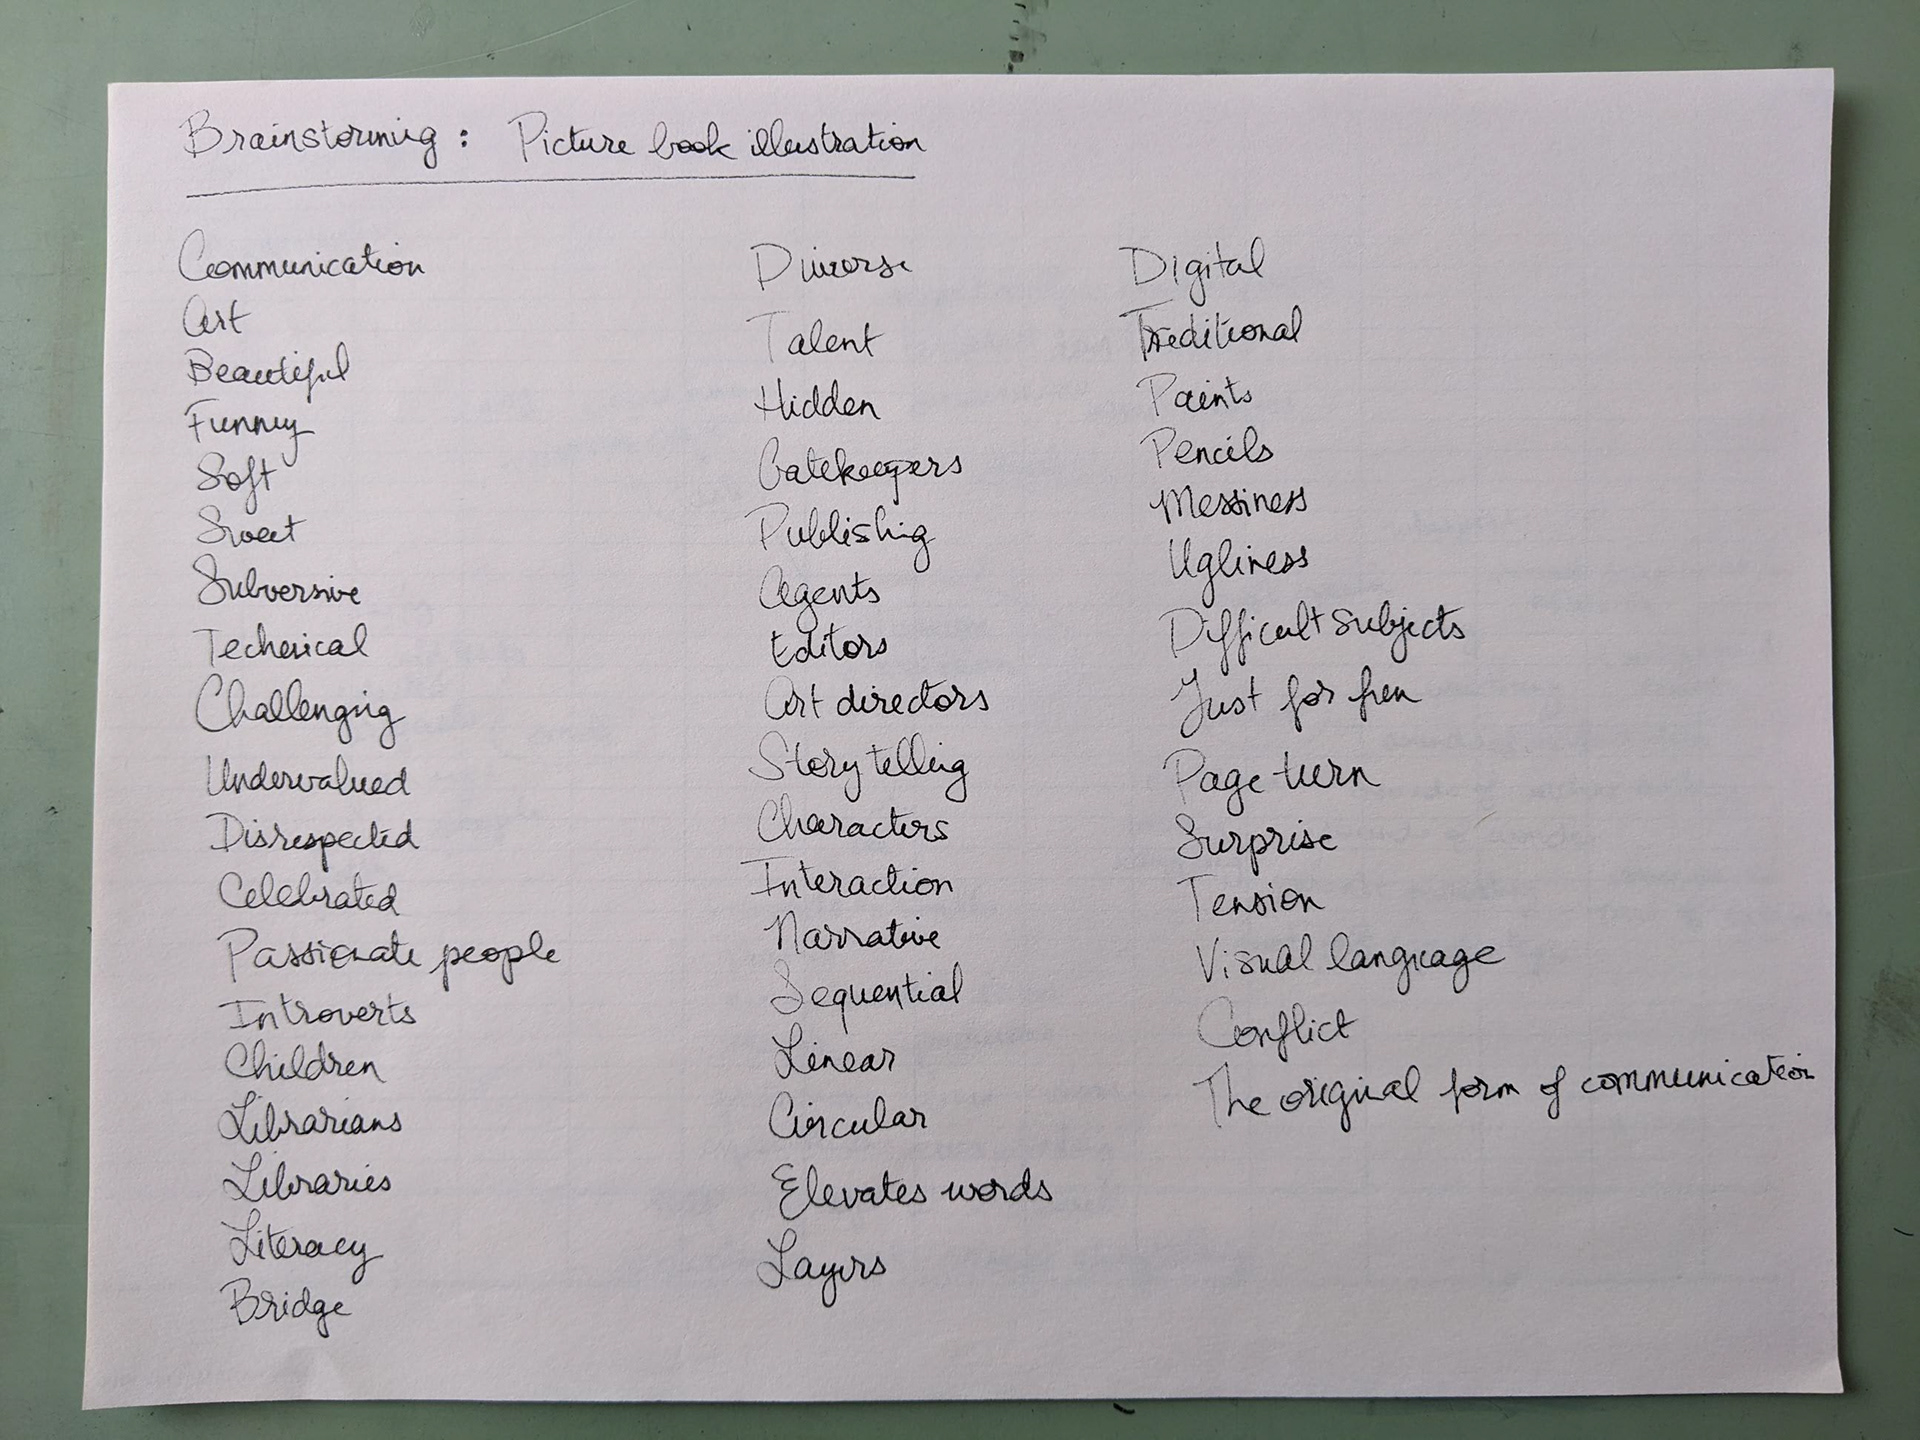 Brainstorming: Picture book illustration
Communication
Art
Beautiful
Funny
Soft
Sweet
Subversive
Technical
Challenging
Undervalued
Disrespected
Celebrated
Passionate people
Introverts
Children
Librarians
Libraries
Literacy
Bridge
Diverse
Talent
Hidden
Gatekeepers
Publishing
Agents
Editors
Art directors
Storytelling
Characters
Interaction
Narrative
Sequential
Linear
Circular
Elevates words
Layers
Digital
Traditional
Paints
Pencils
Messiness
Ugliness
Difficult subjects
Just for fun
Page turn
Surprise
Tension
Visual language
Conflict
The original form of communication